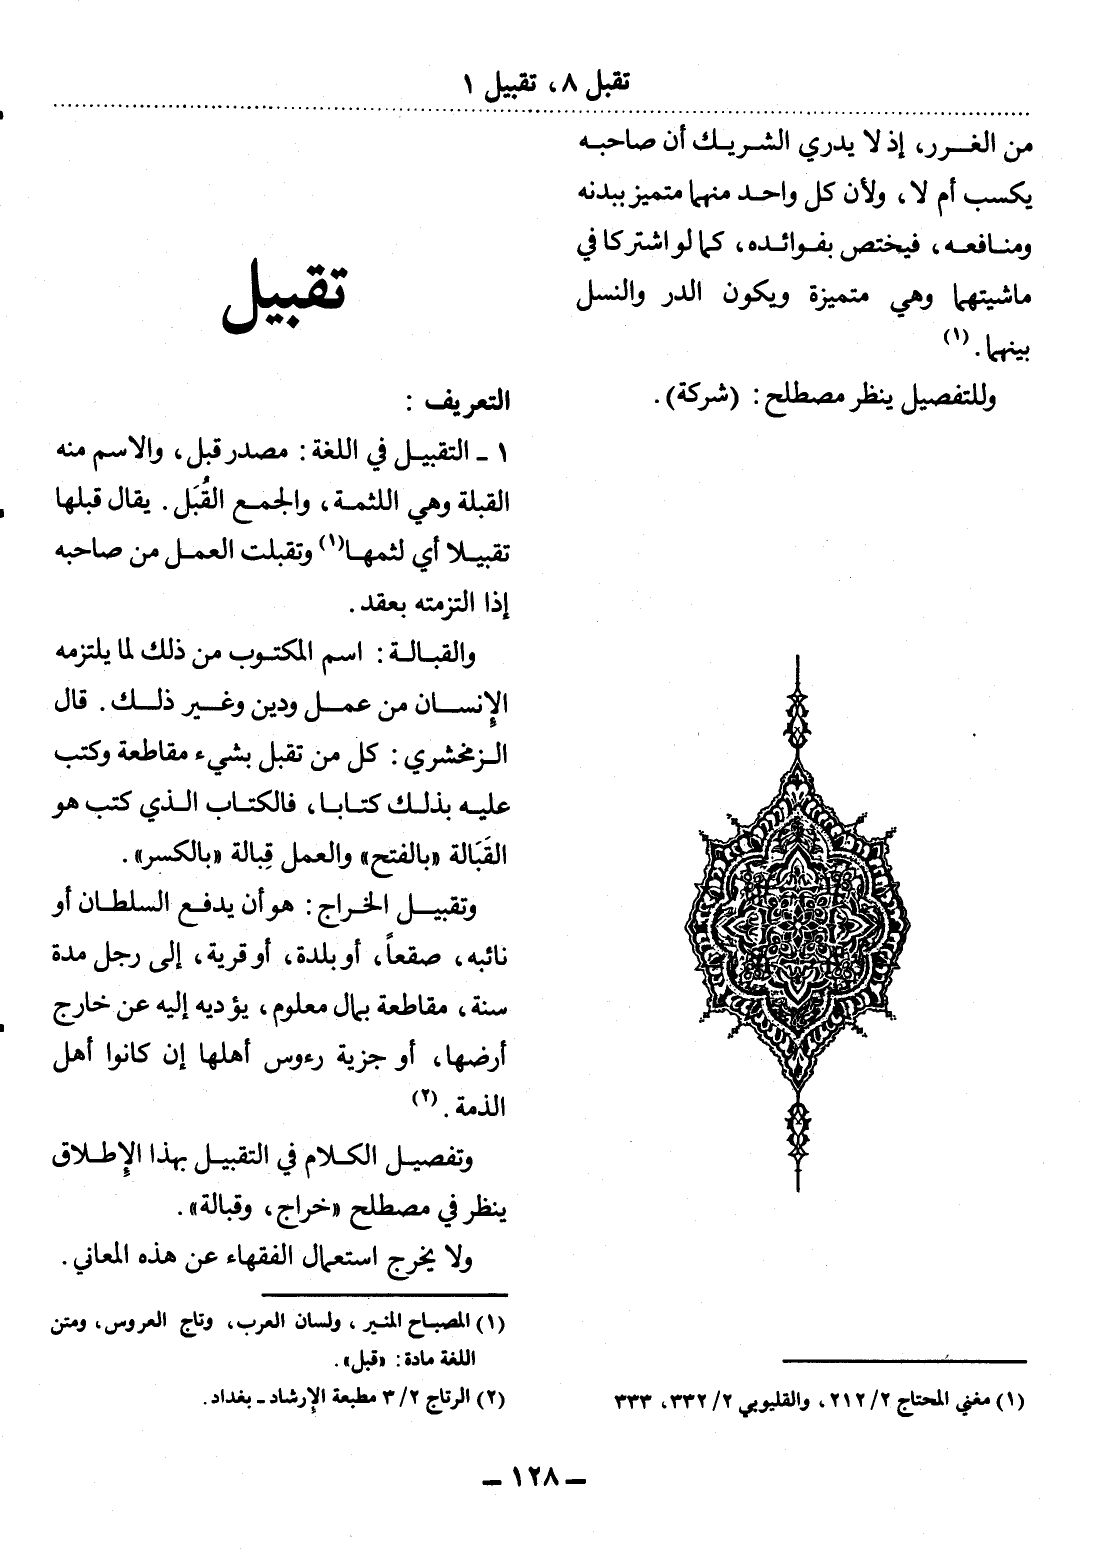 تقبل ٨، تقبيل ١
من الغرر، إذ لا يدري الشريك أن صاحبه
يكسب أم لا، ولأن كل واحد منهما متميز ببدنه
ومنافعه، فيختص بفوائده، كما لو اشتركا في
ماشيتهما وهي متميزة ويكون الدر والنسل
بينهما. (١)
وللتفصيل ينظر مصطلح: (شركة).
(١) مغني المحتاج ٢/ ٢١٢، والقليوبي ٢/ ٣٣٢، ٣٣٣
تقبيل
التعريف :
١ ـ التقبيل في اللغة: مصدر قبل، والاسم منه
القبلة وهي اللثمة، والجمع القُبَل. يقال قبلها
تقبيلا أي لثمها(١) وتقبلت العمل من صاحبه
إذا التزمته بعقد.
والقبالة: اسم المكتوب من ذلك لما يلتزمه
الإنسان من عمل ودين وغير ذلك. قال
الزمخشري: كل من تقبل بشيء مقاطعة وكتب
عليه بذلك كتابا، فالكتاب الذي كتب هو
القَبَالة «بالفتح» والعمل قِبالة «بالكسر».
وتقبيل الخراج: هو أن يدفع السلطان أو
نائبه، صقعاً، أو بلدة، أو قرية، إلى رجل مدة
سنة، مقاطعة بمال معلوم، يؤديه إليه عن خارج
أرضها، أو جزية رءوس أهلها إن كانوا أهل
الذمة. (٢)
وتفصيل الكلام في التقبيل بهذا الإطلاق
ينظر في مصطلح «خراج، وقبالة».
ولا يخرج استعمال الفقهاء عن هذه المعاني.
(١) المصباح المنير، ولسان العرب، وتاج العروس، ومتن
اللغة مادة: «قبل».
(٢) الرتاج ٢/ ٣ مطبعة الإرشاد ـ بغداد.
ـ ١٢٨ ـ